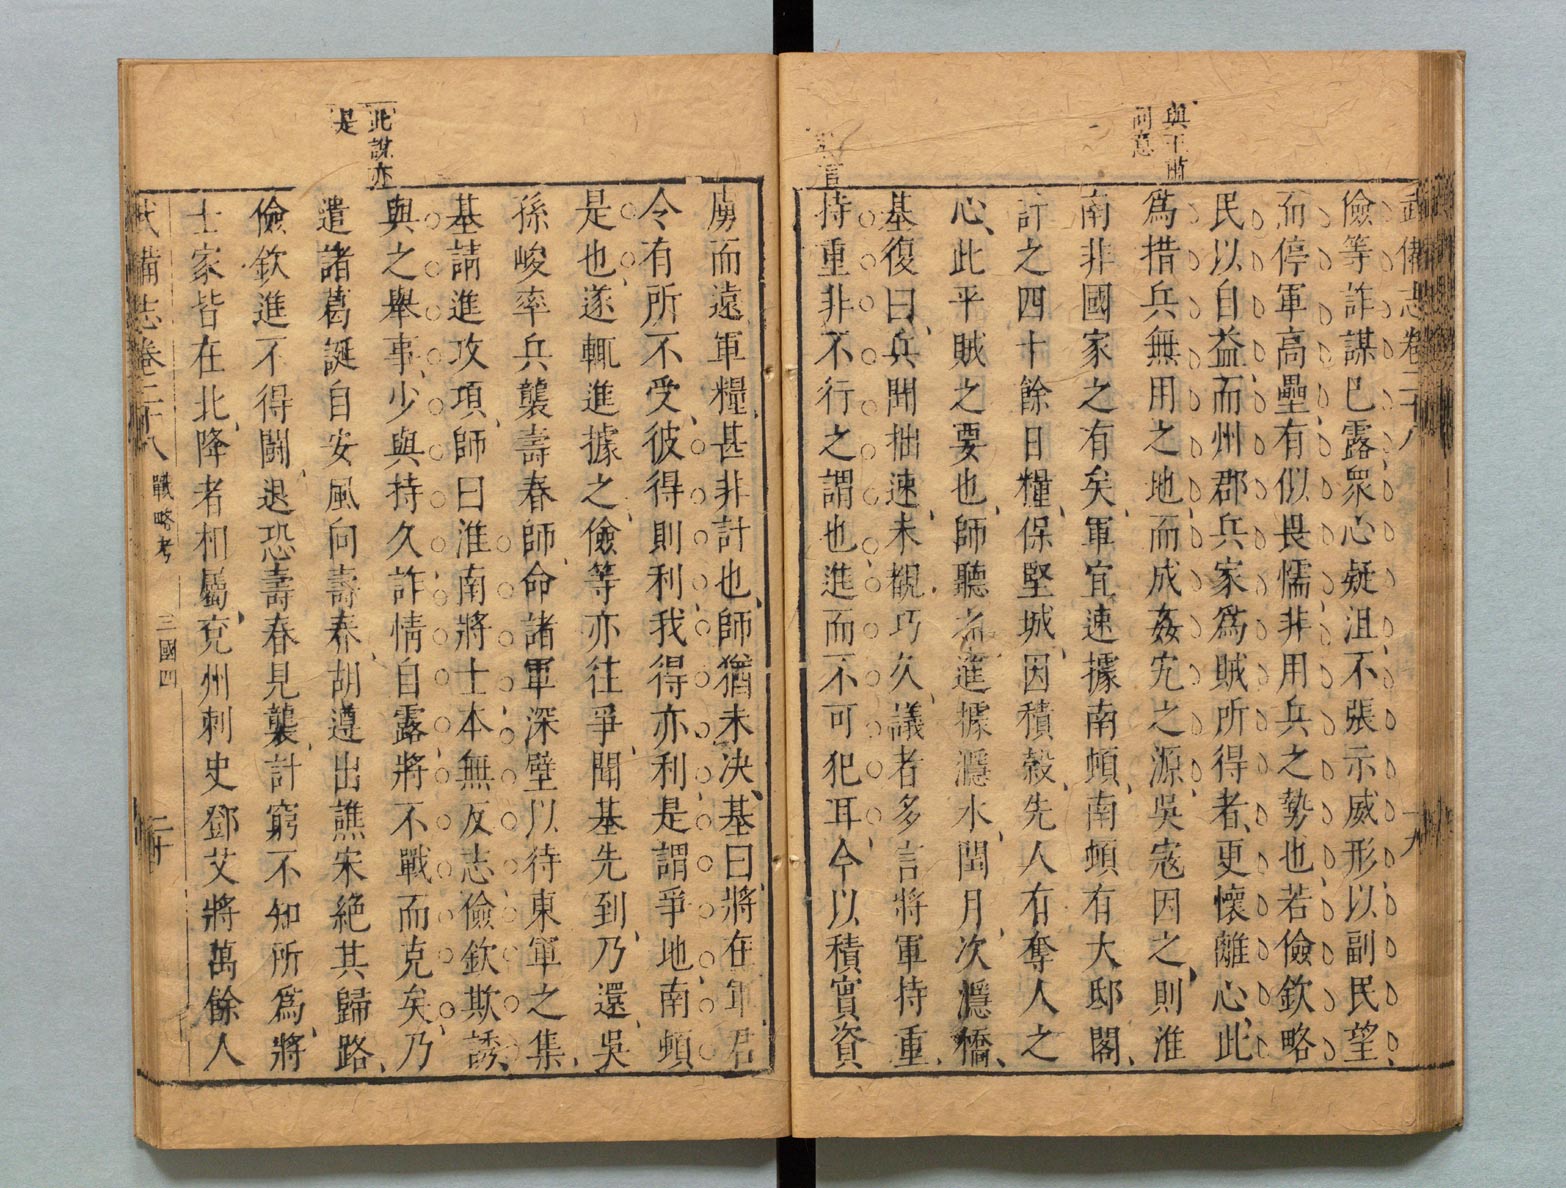 武備志卷二十八
十九
與王肅
同意
儉等詐謀已露眾心疑沮不張示威形以副民望
而停軍高壘有似畏懦非用兵之勢也若儉欽略
民以自益而州郡兵家為賊所得者更懷離心此
為措兵無用之地而成姦宄之源吳寇因之則淮
南非國家之有矣軍宜速據南頓南頓有大邸閣
計之四十餘日糧保堅城因積穀先人有奪人之
心此平賊之要也師聽之進據濦水閏月次濦橋
基復曰兵聞拙速未覩巧久議者多言將軍持重
言
持重非不行之謂也進而不可犯耳今以積實資
虜而遠軍糧甚非計也師猶未決基曰將在軍君
令有所不受彼得則利我得亦利是謂爭地南頓
是也遂輒進據之儉等亦往爭聞基先到乃還吳
孫峻率兵襲壽春師命諸軍深壁以待東軍之集
基請進攻項師曰淮南將士本無反志儉欽欺誘
此說亦
是
與之舉事少與持久詐情自露將不戰而克矣乃
遣諸葛誕自安風向壽春胡遵出譙宋絕其歸路
儉欽進不得鬪退恐壽春見襲計窮不知所為將
士家皆在北降者相屬兗州刺史鄧艾將萬餘人
武備志卷二十八 戰略考 三國四 二十